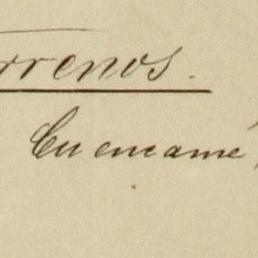 rrenos.
Cuencamé